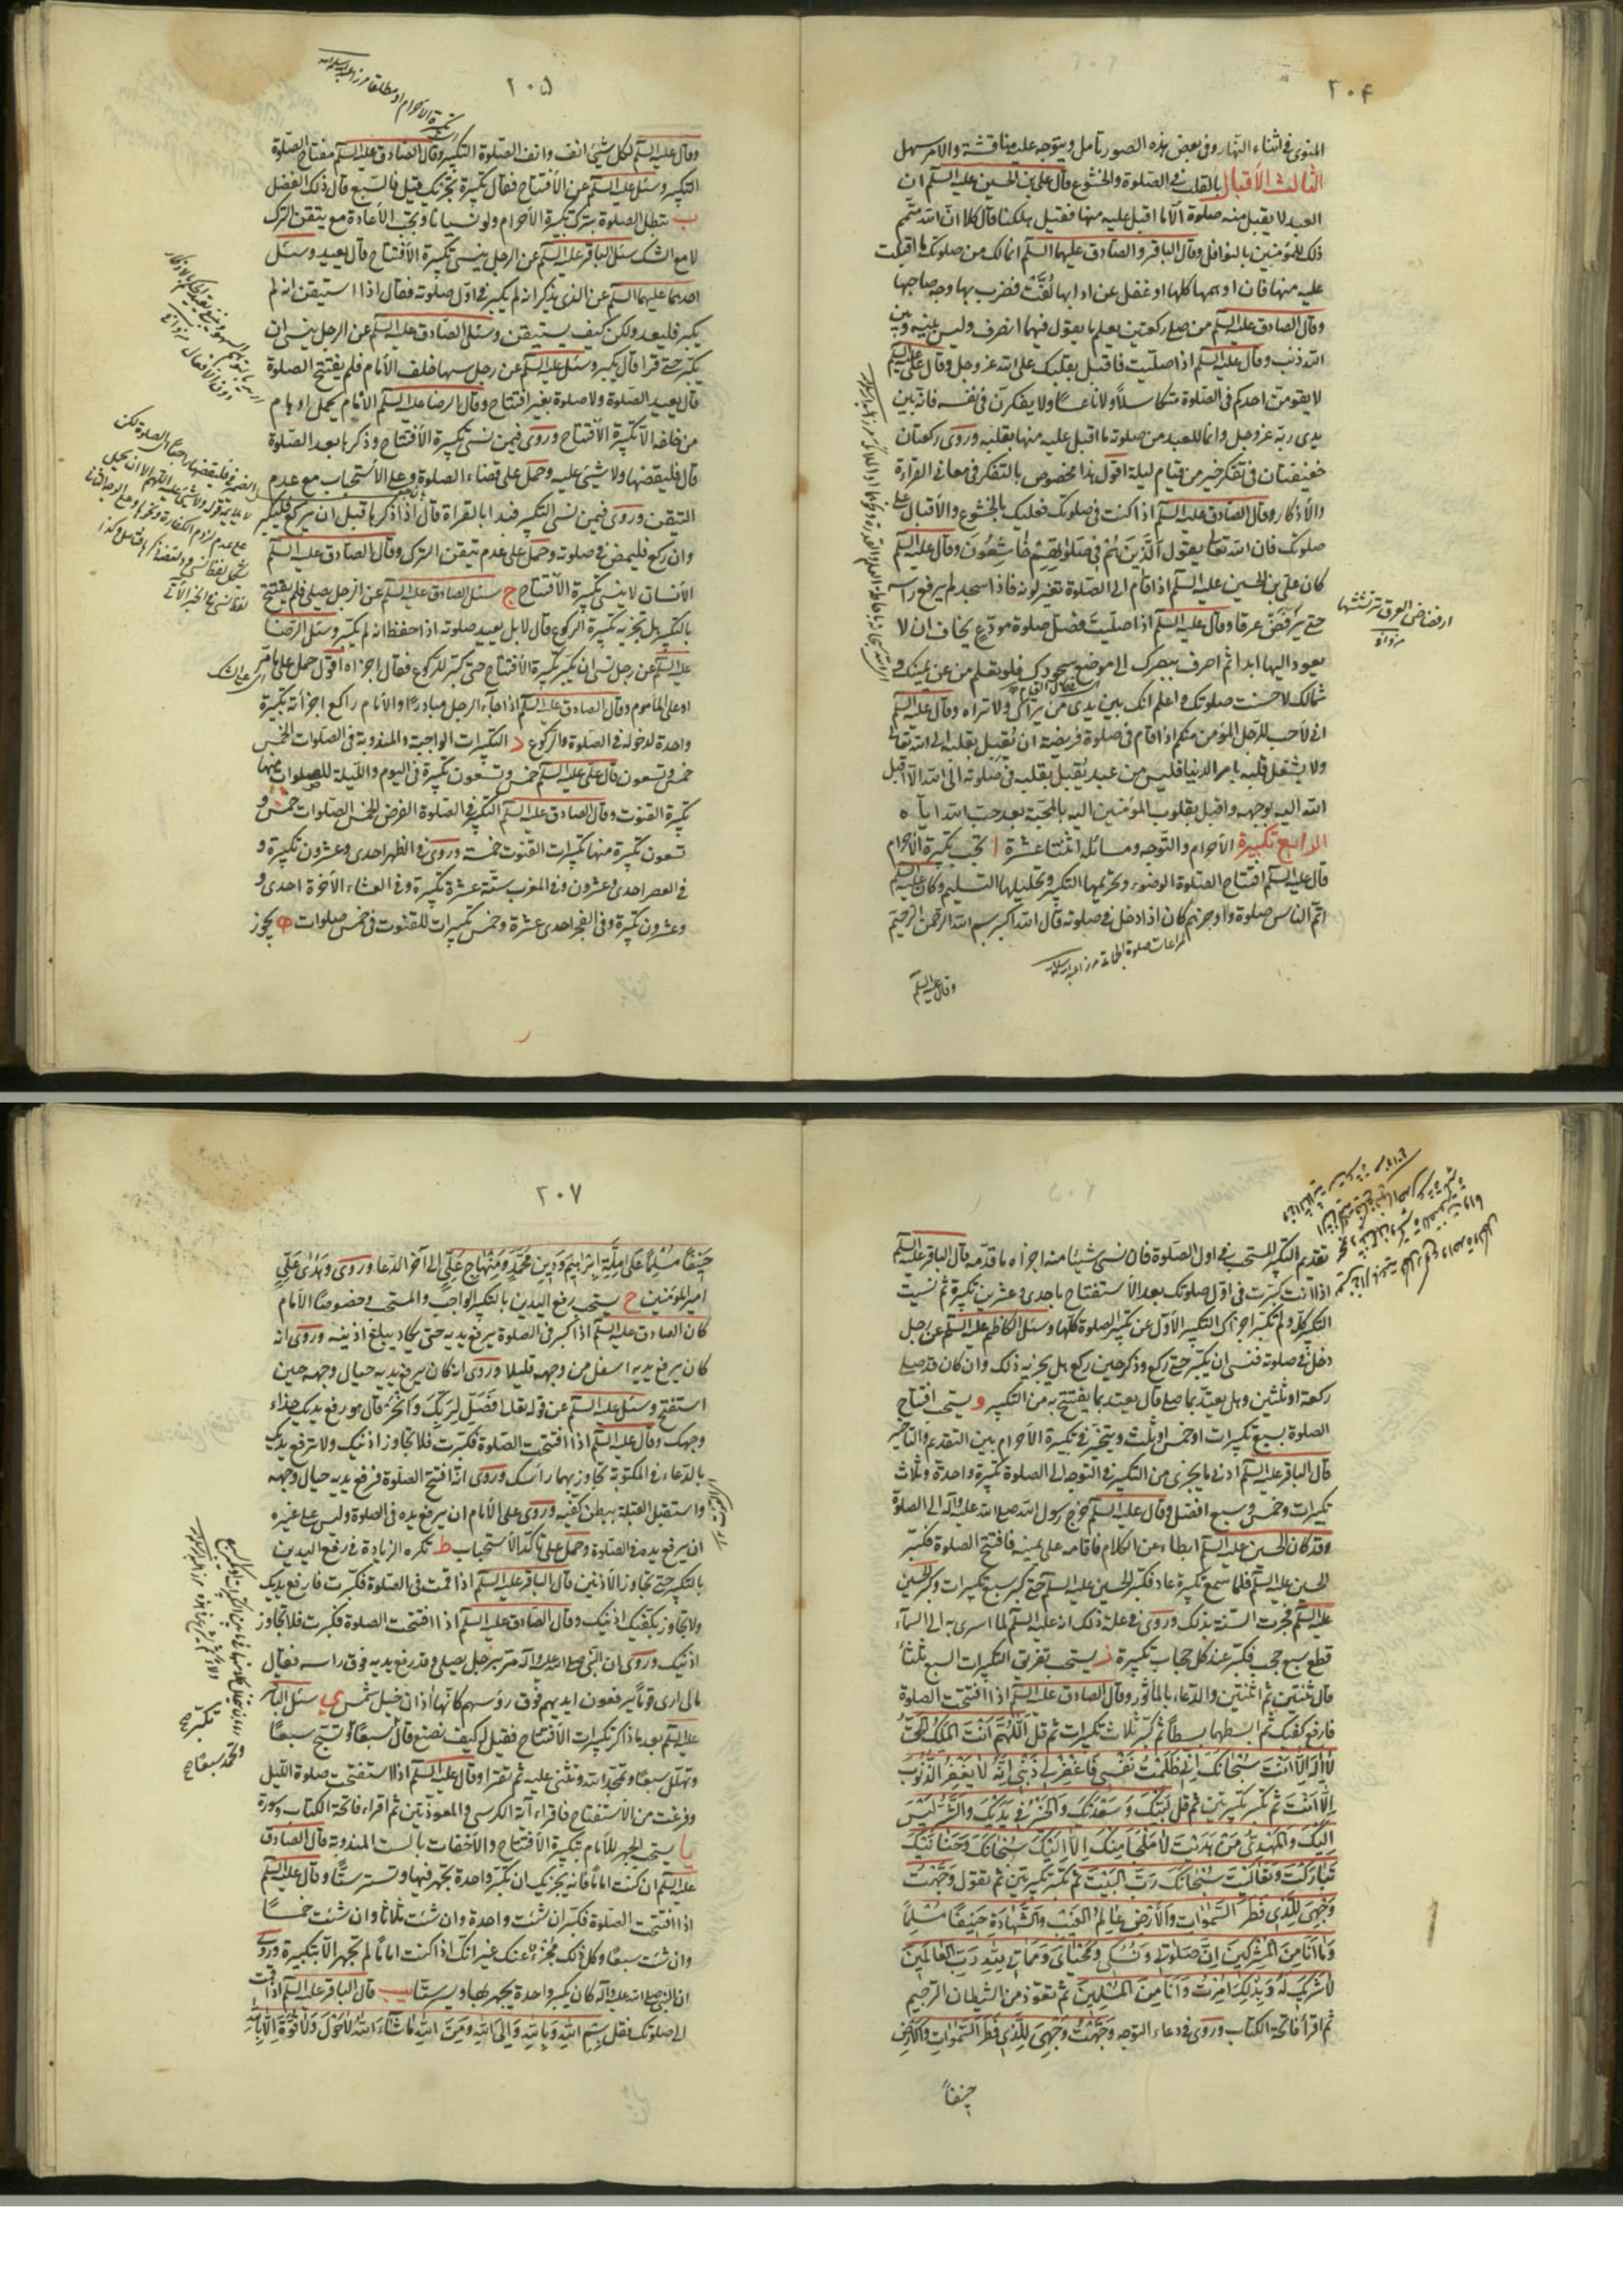 ٢٠۴
المنوى فى اثناء النهار وفى بعض هذه الصور تامل ويتوجه عليه مناقشة والامر سهل
الثالث الأقبال بالقلب فى الصلوة والخشوع قال على بن الحسين عليه السلم ان
العبد لا يقبل منه صلوة الا ما اقبل عليه منها فقيل هلكنا قال كلا ان الله متمم
ذلك للمؤمنين بالنوافل وقال الباقر والصادق عليهما السلم انما لك من صلوتك ما اقبلت
عليه منها فان اوهمها كلها او غفل عن ادابها لفت فضرب بها وجه صاحبها
وقال الصادق عليه السلم من صلى ركعتين يعلم ما يقول فيهما انصرف وليس بينه وبين
الله ذنب وقال عليه السلم اذا صليت فاقبل بقلبك على الله عز وجل وقال على عليه السلم
لا يقومن احدكم فى الصلوة متكاسلا ولا ناعسا ولا يفكرن فى نفسه فانه بين
يدى ربه عز وجل وانما للعبد من صلوته ما اقبل عليه منها بقلبه وروى ركعتان
خفيفتان فى تفكر خير من قيام ليلة اقول هذا مخصوص بالتفكر فى معانى القراءة
والأذكار وقال الصادق عليه السلم اذا كنت فى صلوتك فعليك بالخشوع والأقبال على
صلوتك فان الله تعالى يقول الذين هم فى صلوتهم خاشعون وقال عليه السلم
كان على بن الحسين عليه السلم اذا قام الى الصلوة تغير لونه فاذا سجد لم يرفع راسه
حتى يرفض عرقا وقال عليه السلم اذا صليت فصل صلوة مودع يخاف ان لا
يعود اليها ابدا ثم اصرف ببصرك الى موضع سجودك فلو تعلم من عن يمينك و
شمالك لأحسنت صلوتك واعلم انك بين يدى من يراك ولا تراه وقال عليه السلم
انى لاحب للرجل المؤمن منكم اذا قام فى صلوة فريضة ان يقبل بقلبه الى الله تعالى
ولا يشغل قلبه بامر الدنيا فليس من عبد يقبل بقلبه فى صلوته الى الله الا اقبل
الله اليه بوجهه واقبل بقلوب المؤمنين اليه بالمحبة بعد حب الله اياه
الرابع تكبيرة الأحرام والتوجه ومسائله اثنتا عشرة ا تجب تكبيرة الأحرام
قال عليه السلم افتتاح الصلوة الوضوء وتحريمها التكبير وتحليلها التسليم وكان عليه السلم
اتم الناس صلوة واوجزهم كان اذا دخل فى صلوته قال الله اكبر بسم الله الرحمن الرحيم
وقال عليه السلم
٢٠۵
وقال عليه السلم لكل شئ انف وانف الصلوة التكبير وقال الصادق عليه السلم مفتاح الصلوة
التكبير وسئل عليه السلم عن الأفتتاح فقال تكبيرة تجزيك قيل فالسبع قال ذلك الفضل
ب تبطل الصلوة بترك تكبيرة الأحرام ولو نسيانا وتجب الأعادة مع تيقن الترك
لا مع الشك سئل الباقر عليه السلم عن الرجل ينسى تكبيرة الأفتتاح قال يعيد وسئل
احدهما عليهما السلم عن الذى يذكر انه لم يكبر فى اول صلوته فقال اذا استيقن انه لم
يكبر فليعد ولكن كيف يستيقن وسئل الصادق عليه السلم عن الرجل ينسى ان
يكبر حتى قرا قال يكبر وسئل عليه السلم عن رجل سها خلف الأمام فلم يفتتح الصلوة
قال يعيد الصلوة ولا صلوة بغير افتتاح وقال الرضا عليه السلم الأمام يحمل اوهام
من خلفه الا تكبيرة الأفتتاح وروى فيمن نسى تكبيرة الأفتتاح وذكرها بعد الصلوة
قال فليقضها ولا شئ عليه وحمل على قضاء الصلوة وعلى الأستحباب مع عدم
التيقن وروى فيمن نسى التكبير فبدا بالقراة قال اذا ذكرها قبل ان يركع فليكبر
وان ركع فليمض فى صلوته وحمل على عدم تيقن الترك وقال الصادق عليه السلم
الأنسان لا ينسى تكبيرة الأفتتاح ج سئل الصادق عليه السلم عن الرجل يصلى فلم يفتتح
بالتكبير هل تجزيه تكبيرة الركوع قال لا بل يعيد صلوته اذا حفظ انه لم يكبر وسئل الرضا
عليه السلم عن رجل نسى ان يكبر تكبيرة الأفتتاح حتى كبر للركوع فقال اجزاه اقول حمل على ما مر
او على المأموم وقال الصادق عليه السلم اذا جاء الرجل مبادرا والأمام راكع اجزأته تكبيرة
واحدة لدخوله فى الصلوة والركوع د التكبيرات الواجبة والمندوبة فى الصلوات الخمس
خمس وتسعون قال على عليه السلم خمس وتسعون تكبيرة فى اليوم والليلة للصلوات منها
تكبيرة القنوت وقال الصادق عليه السلم التكبير فى الصلوة الفرض الخمس الصلوات خمس و
تسعون تكبيرة منها تكبيرات القنوت خمسة وروى فى الظهر احدى وعشرون تكبيرة و
فى العصر احدى وعشرون وفى المغرب ستة عشرة تكبيرة وفى العشاء الأخرة احدى و
وعشرون تكبيرة وفى الفجر احدى عشرة وخمس تكبيرات للقنوت فى خمس صلوات ه يجوز
تقديم التكبير المستحب فى اول الصلوة فان نسى شيئا منه اجزاه ما قدمه قال الباقر عليه السلم
اذا انت كبرت فى اول صلوتك بعد الأستفتاح باحدى وعشرين تكبيرة ثم نسيت
التكبير كله ولم تكبر اجزاك التكبير الأول عن تكبير الصلوة كلها وسئل الكاظم عليه السلم عن رجل
دخل فى صلوته فنسى ان يكبر حتى ركع وذكر حين ركع هل يجزيه ذلك وان كان قد صلى
ركعة او ثنتين وهل يعتد بما صلى قال يعتد بما يفتتح به من التكبير و يستحب افتتاح
الصلوة بسبع تكبيرات او خمس او ثلث ويتخير فى تكبيرة الأحرام بين التقديم والتأخير
قال الباقر عليه السلم ادنى ما يجزى من التكبير فى التوجه الى الصلوة تكبيرة واحدة وثلاث
تكبيرات وخمس وسبع افضل وقال عليه السلم خرج رسول الله صلى الله عليه واله الى الصلوة
وقد كان الحسين عليه السلم ابطاء عن الكلام فاقامه على يمينه فافتتح الصلوة فكبر
الحسين عليه السلم فلما سمع تكبيرة عاد فكبر الحسين عليه السلم حتى كبر سبع تكبيرات وكبر الحسين
عليه السلم فجرت السنة بذلك وروى فى علة ذلك انه عليه السلم لما اسرى به الى السماء
قطع سبع حجب فكبر عند كل حجاب تكبيرة ز يستحب تفريق التكبيرات السبع ثلثا
قال ثنتين ثم اثنتين والدعاء بالمأثور وقال الصادق عليه السلم اذا افتتحت الصلوة
فارفع كفيك ثم ابسطهما بسطا ثم كبر ثلاث تكبيرات ثم قل اللهم انت الملك الحق
لا اله الا انت سبحانك انى ظلمت نفسى فاغفر لى ذنبى انه لا يغفر الذنوب
الا انت ثم تكبر تكبيرتين ثم قل لبيك وسعديك والخير فى يديك والشر ليس
اليك والمهدى من هديت لا ملجأ منك الا اليك سبحانك وحنانيك
تباركت وتعاليت سبحانك رب البيت ثم تكبر تكبيرتين ثم تقول وجهت
وجهى للذى فطر السموات والأرض عالم الغيب والشهادة حنيفا مسلما
وما انا من المشركين ان صلوتى ونسكى ومحياى ومماتى لله رب العالمين
لا شريك له وبذلك امرت وانا من المسلمين ثم تعوذ من الشيطان الرجيم
ثم اقرأ فاتحة الكتاب وروى فى دعاء التوجه وجهت وجهى للذى فطر السموات والأرض
حنيفا
٢٠٧
حنيفا مسلما على ملة ابراهيم ودين محمد ومنهاج على الى آخر الدعا وروى وهدى على
امير المؤمنين ح يستحب رفع اليدين بالتكبير الواجب والمستحب وخصوصا الأمام
كان الصادق عليه السلم اذا كبر فى الصلوة يرفع يديه حتى يكاد يبلغ اذنيه وروى انه
كان يرفع يديه اسفل من وجهه قليلا وروى انه كان يرفع يديه حيال وجهه حين
استفتح وسئل عليه السلم عن قوله تعالى فصل لربك وانحر قال هو رفع يديك حذاء
وجهك وقال عليه السلم اذا افتتحت الصلوة فكبرت فلا تجاوز اذنيك ولا ترفع يديك
بالدعاء فى المكتوبة تجاوز بهما راسك وروى انه افتتح الصلوة فرفع يديه حيال وجهه
واستقبل القبلة ببطن كفيه وروى على الأمام ان يرفع يده فى الصلوة وليس على غيره
ان يرفع يده فى الصلوة وحمل على تاكد الأستحباب ط تكره الزيادة فى رفع اليدين
بالتكبير حتى تجاوز الأذنين قال الباقر عليه السلم اذا قمت فى الصلوة فكبرت فارفع يديك
ولا تجاوز بكفيك اذنيك وقال الصادق عليه السلم اذا افتتحت الصلوة فكبرت فلا تجاوز
اذنيك وروى ان النبى صلى الله عليه واله مر برجل يصلى وقد رفع يديه فوق راسه فقال
مالى ارى قوما يرفعون ايديهم فوق رؤسهم كانها اذان خيل شمس ى سئل الباقر
عليه السلم بعد ما ذكر تكبيرات الأفتتاح فقيل له كيف نصنع قال تكبر سبعا وتسبح سبعا
وتهلل سبعا وتحمد الله وتثنى عليه ثم تقرا وقال عليه السلم اذا استفتحت صلوة الليل
وفرغت من الأستفتاح فاقراء آية الكرسى والمعوذتين ثم اقراء فاتحة الكتاب وسورة
يا يستحب الجهر للأمام بتكبيرة الأفتتاح والأخفات بالست المندوبة قال الصادق
عليه السلم ان كنت اماما فانه يجزيك ان تكبر واحدة تجهر فيها وتسر ستا وقال عليه السلم
اذا افتتحت الصلوة فكبر ان شئت واحدة وان شئت ثلاثا وان شئت خمسا
وان شئت سبعا وكل ذلك مجزء عنك غير انك اذا كنت اماما لم تجهر الا بتكبيرة وروى
ان النبى صلى الله عليه واله كان يكبر واحدة يجهر بها ويسر ستا يب قال الباقر عليه السلم اذا قمت
الى صلوتك فقل بسم الله وبالله والى الله ومن الله ما شاء الله لا حول ولا قوة الا بالله